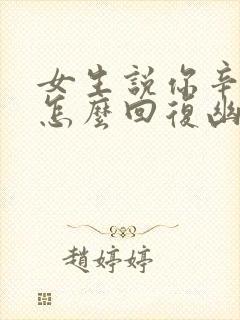 女生說你辛
怎麼回復幽
趙婷婷